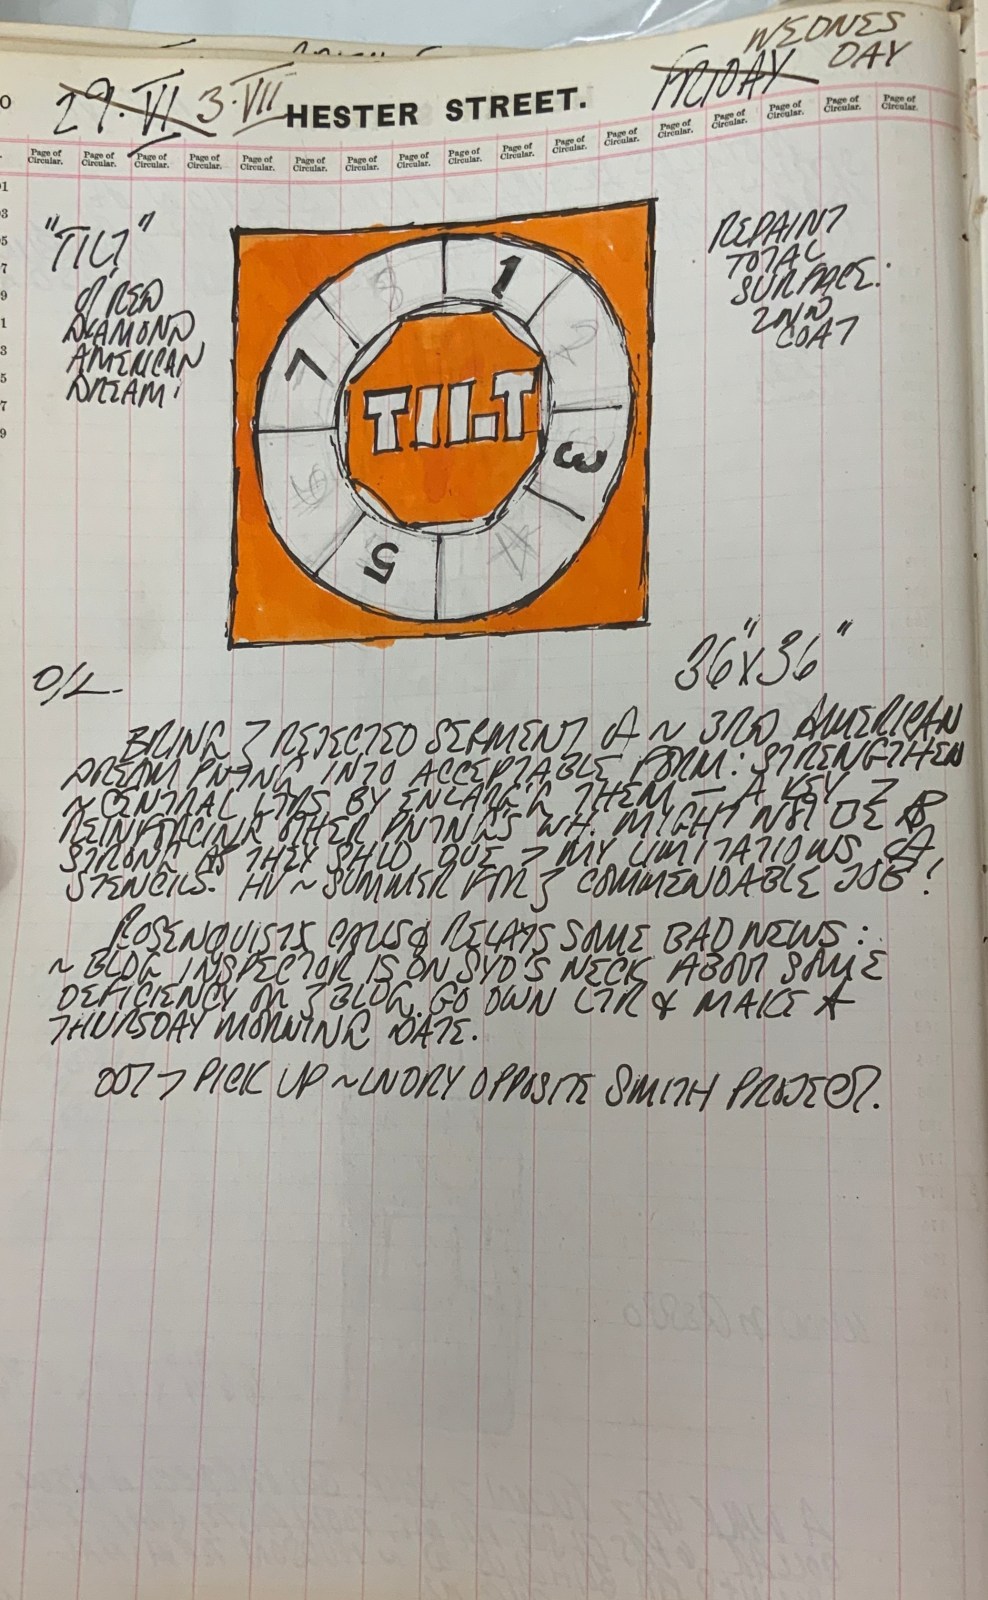 WEDNES
29·VI 3·VII HESTER STREET. FRIDAY DAY
Page of Circular. Page of Circular. Page of Circular. Page of Circular. Page of Circular. Page of Circular. Page of Circular. Page of Circular. Page of Circular. Page of Circular. Page of Circular. Page of Circular. Page of Circular. Page of Circular. Page of Circular. Page of Circular. Page of Circular.
"TILT"
RED
DIAMOND
AMERICAN
DREAM
REPAINT
TOTAL
SURFACE.
2ND
COAT
8 1
7
TILT
3
5
36" X 36"
BRING REJECTED SEGMENT ~ 3RD AMERICAN
DREAM PNTNG INTO ACCEPTABLE FORM: STRENGTHEN
~ CENTRAL LTRS BY ENLARG'G THEM — A KEY
REINFORCING OTHER PNTNGS WH. MIGHT NOT BE AS
STRONG AS THEY SHLD, DUE > MY LIMITATIONS
STENCILS. ~ SUMMER FOR COMMENDABLE JOB!
ROSENQUIST CALLS & RELAYS SOME BAD NEWS:
~ BLDG INSPECTOR IS ON SYD'S NECK ABOUT SOME
DEFICIENCY BLDG. GO OWN LTR & MAKE A
THURSDAY MORNING DATE.
OUT > PICK UP ~ LNDRY OPPOSITE SMITH PROJECT.